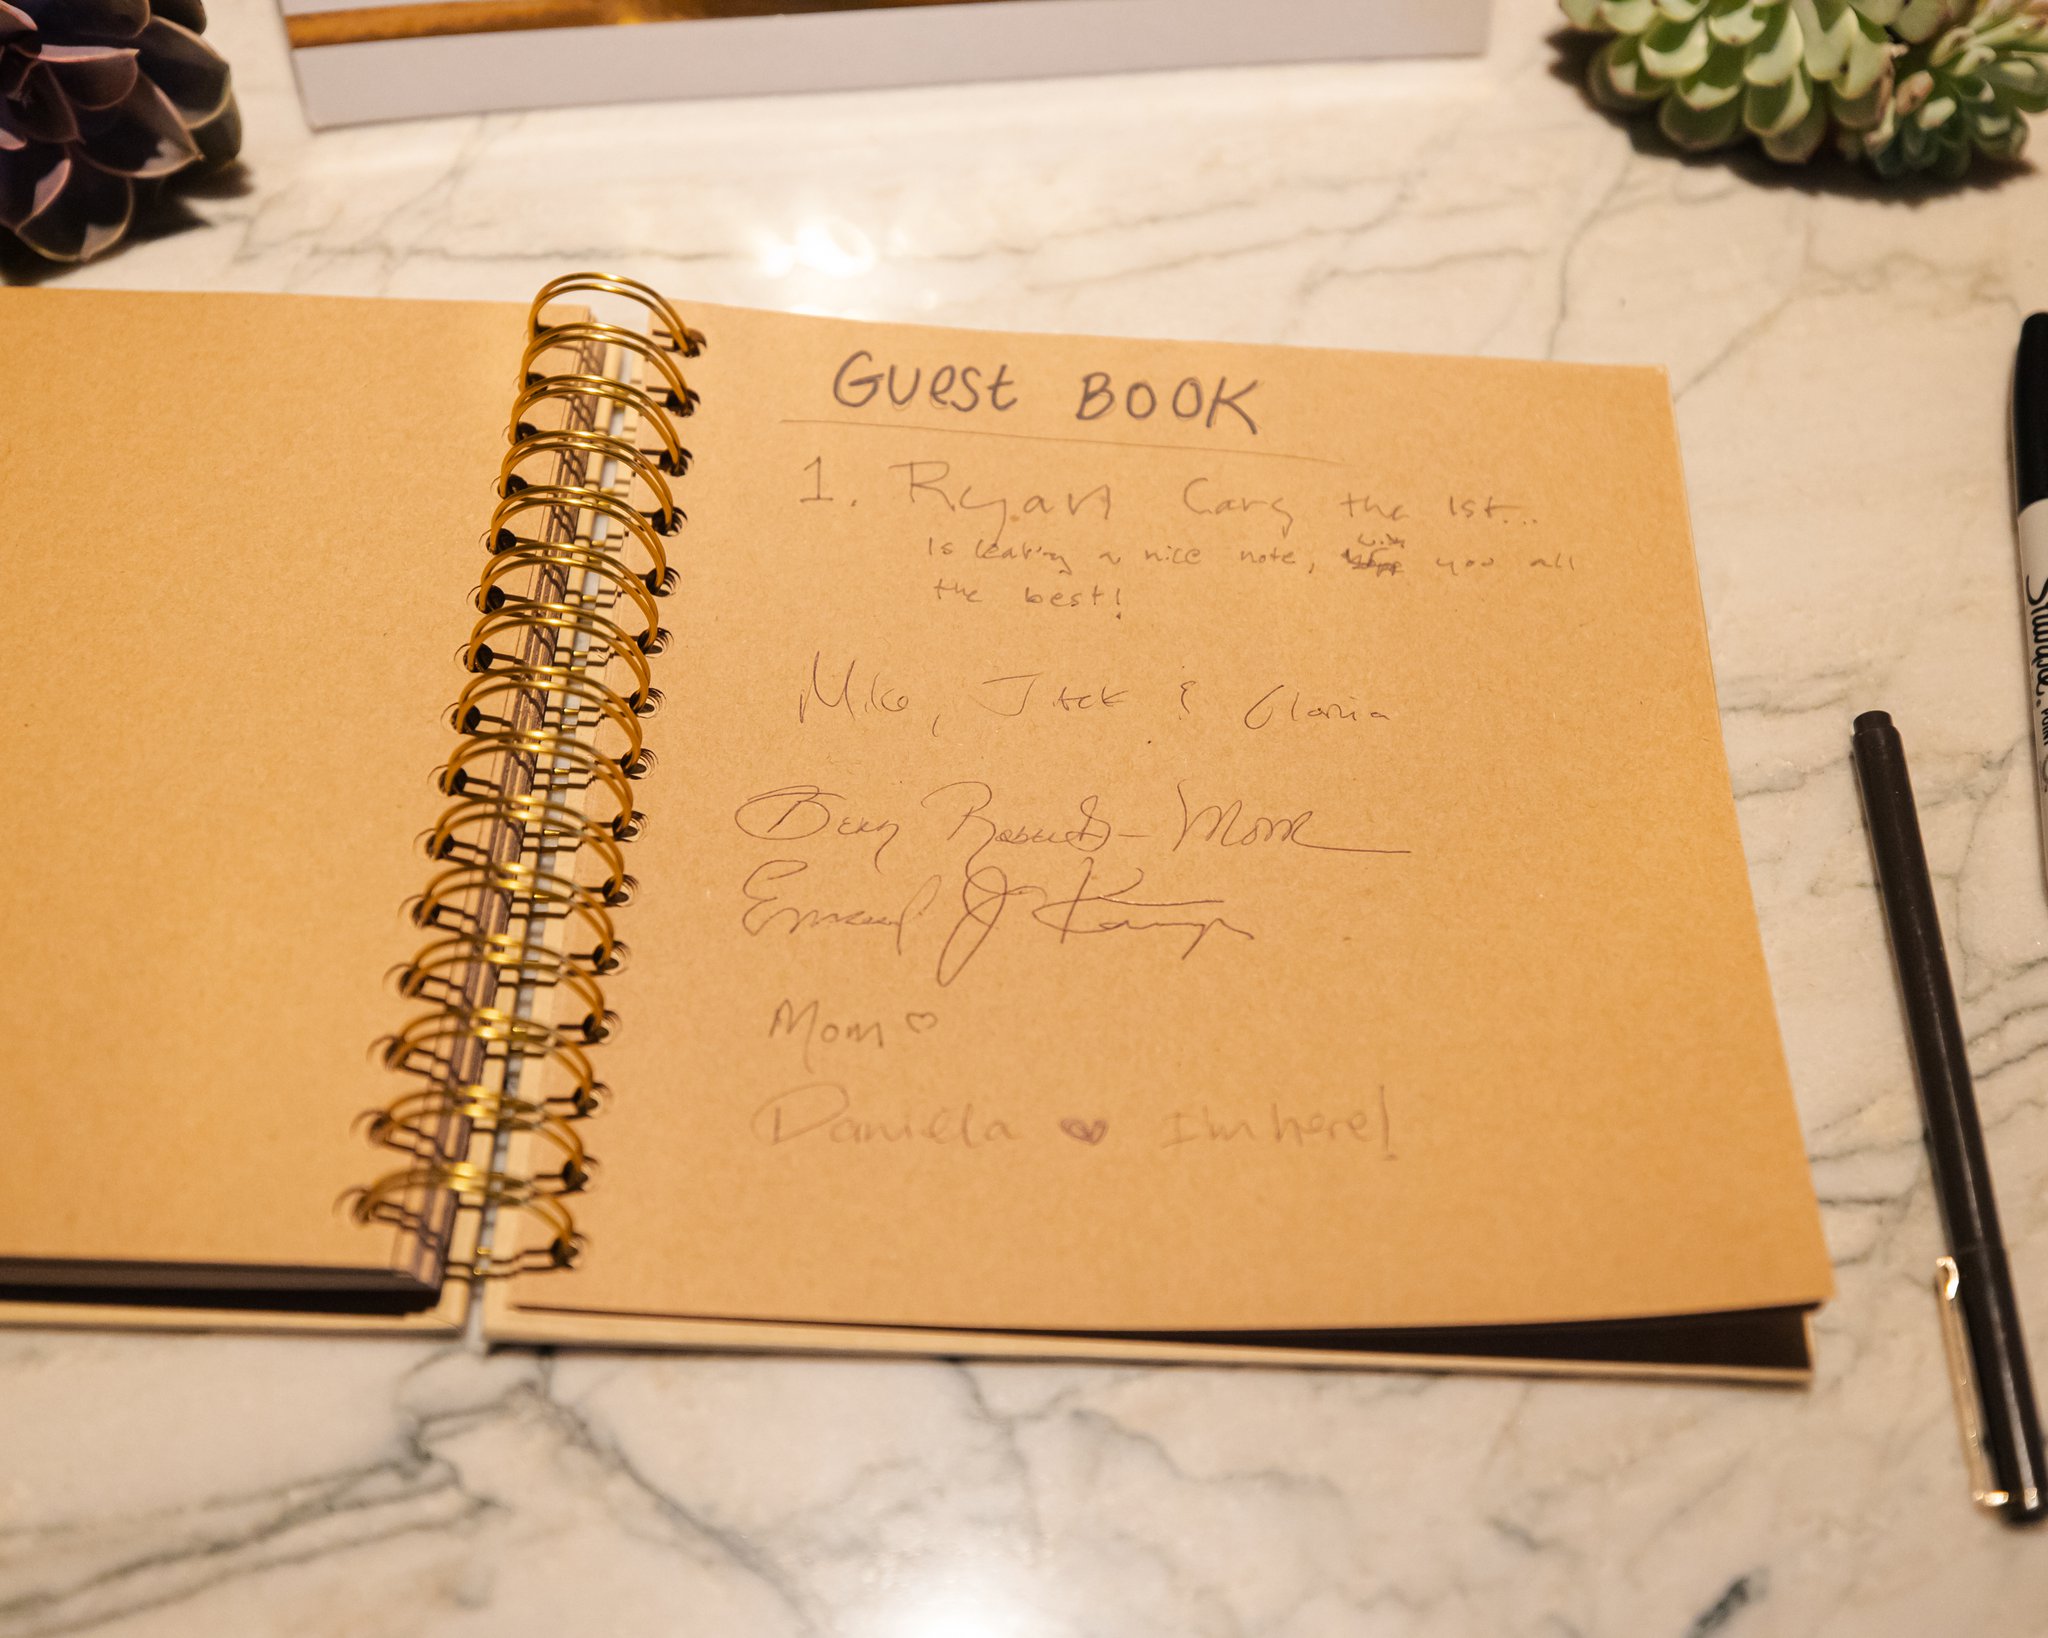 GUEST BOOK
1. Ryan Carg the 1st...
Is leaving a nice note, wish you all
the best!
Mike, Jack & Gloria
Roberts - Mom
J Kamp
Mom ♡
Daniella ♥ I'm here!